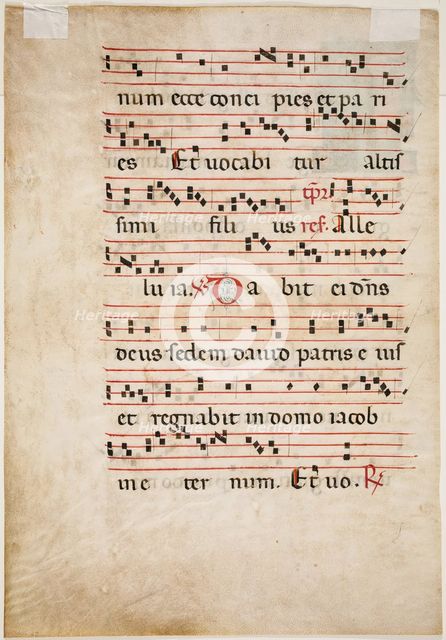 num ecce conci pies et pa ri
es Et vocabi tur altis
simi fili us res. Alle
lu ia. Da bit ei dns
deus sedem dauid patris e ius
et regnabit in domo iacob
in e ter num. Et vo. R